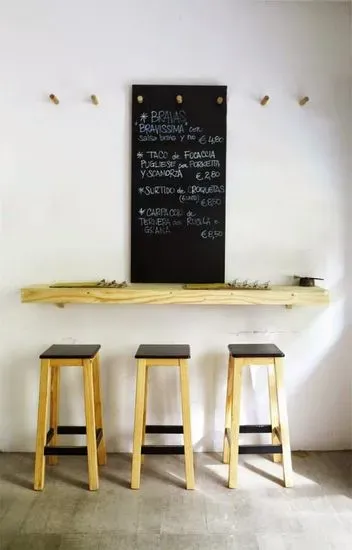 * BRAVAS
"BRAVISSIMA" con
salsa brava y no € 4,80
* TACO de FOCACCIA
PUGLIESE con PORKETTA
Y SCAMORZA € 2,80
* SURTIDO de CROQUETAS
€ 8,50
* CARPACCIO de
TERNERA con RUCULA e
GRANA € 8,50